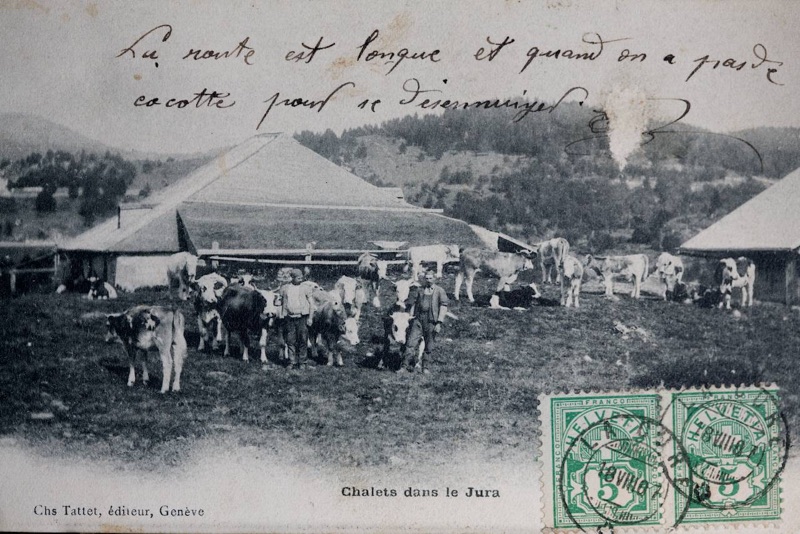 La route est longue et quand on a pas de
cocotte pour se désennuyer
Chalets dans le Jura
Chs Tattet, éditeur, Genève
FRANCO FRANCO
HELVETIA HELVETIA
5 5